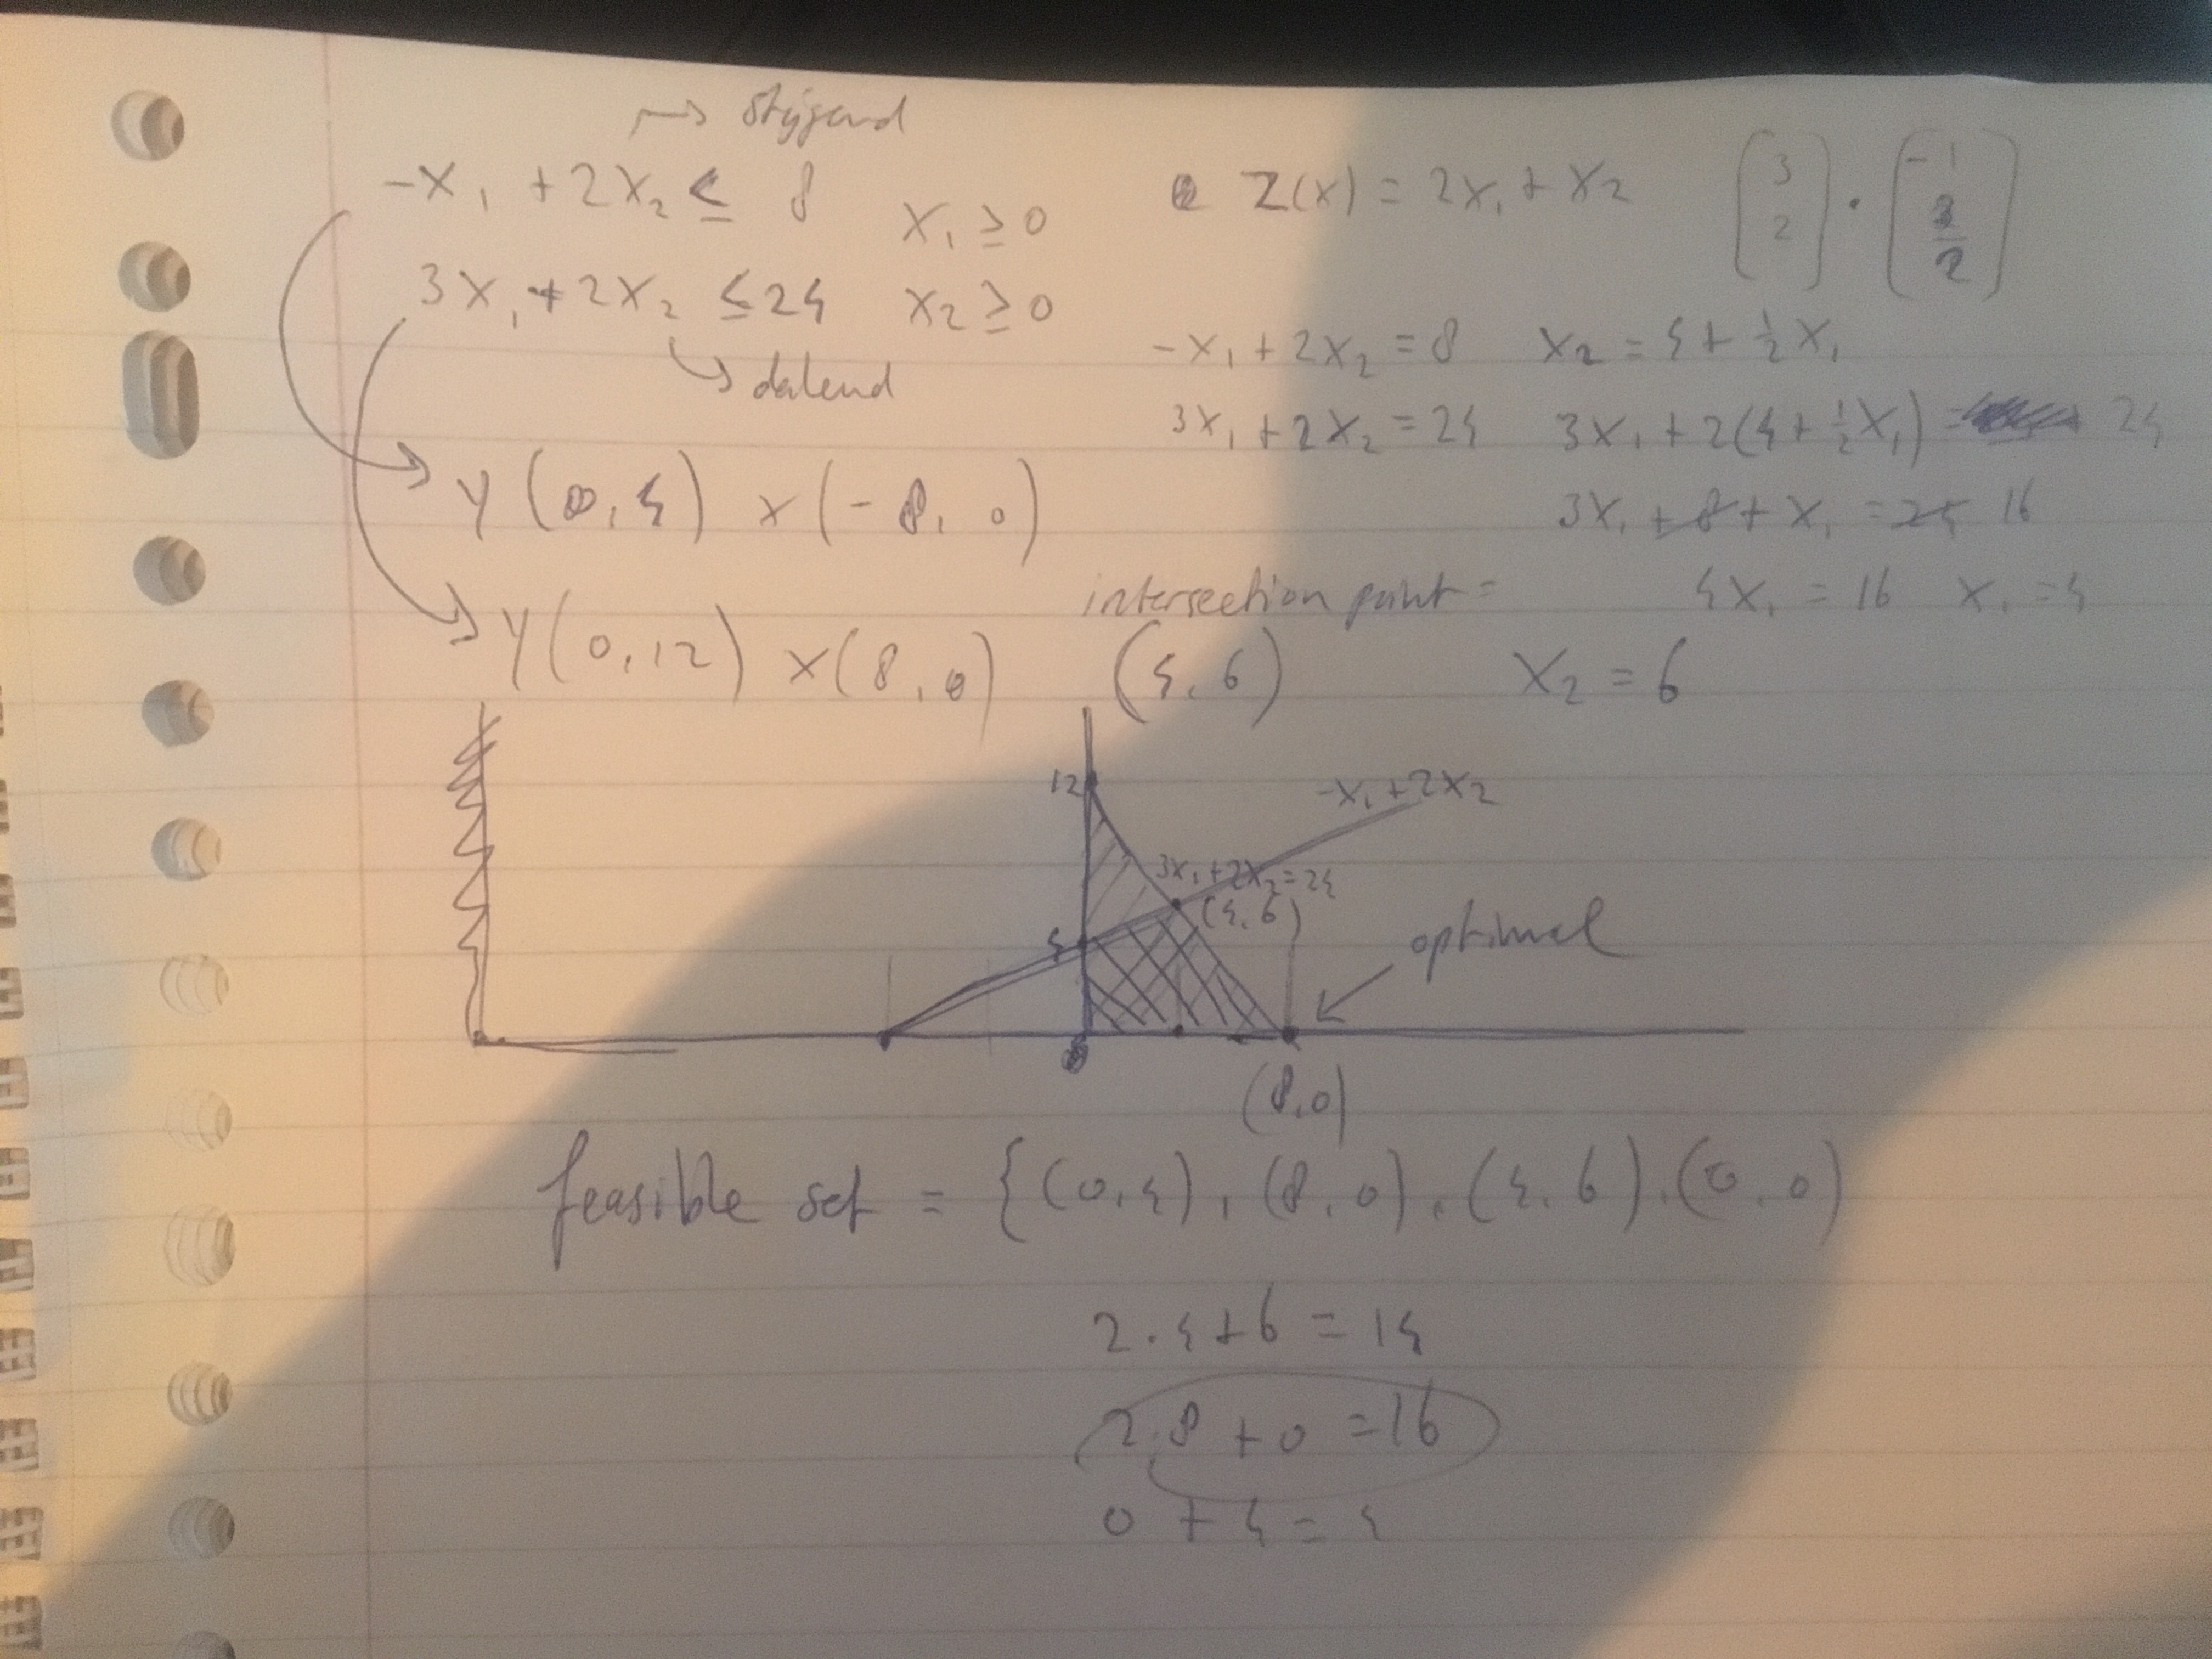 → stijgend
-x₁ + 2x₂ ≤ 8
x₁ ≥ 0
3x₁ + 2x₂ ≤ 24
x₂ ≥ 0
→ dalend
y (0, 4) x (-8, 0)
y (0, 12) x (8, 0)
Z(x) = 2x₁ + x₂
(3 2) · (-1 3/2)
-x₁ + 2x₂ = 8 x₂ = 4 + ½x₁
3x₁ + 2x₂ = 24 3x₁ + 2(4 + ½x₁) = 24
3x₁ + 8 + x₁ = 24 16
intersection point = 4x₁ = 16 x₁ = 4
(4, 6) x₂ = 6
12
-x₁ + 2x₂
3x₁ + 2x₂ = 24
(4, 6)
4
optimal
(8, 0)
feasible set = {(0, 4), (8, 0), (4, 6), (0, 0)
2 · 4 + 6 = 14
2 · 8 + 0 = 16
0 + 4 = 4